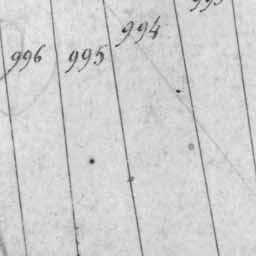 996 995 994